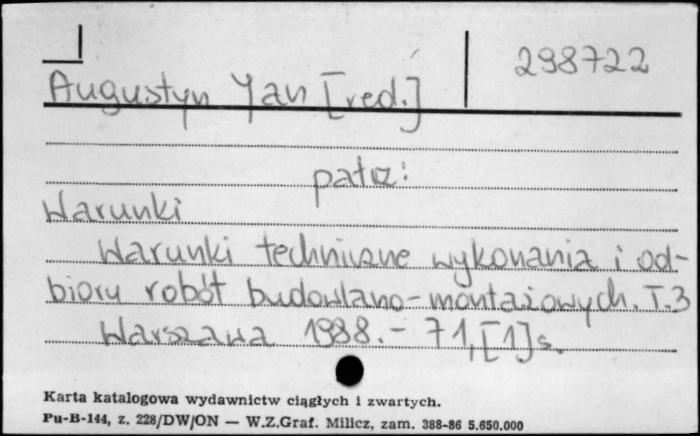 298722
Augustyn Jan [red.]
patrz:
Warunki
Warunki techniczne wykonania i od-
bioru robót budowlano-montażowych. T.3
Warszawa 1988. - 71, [1] s.
Karta katalogowa wydawnictw ciągłych i zwartych.
Pu-B-144, z. 228/DW/ON — W.Z.Graf. Milicz, zam. 388-86 5.650.000